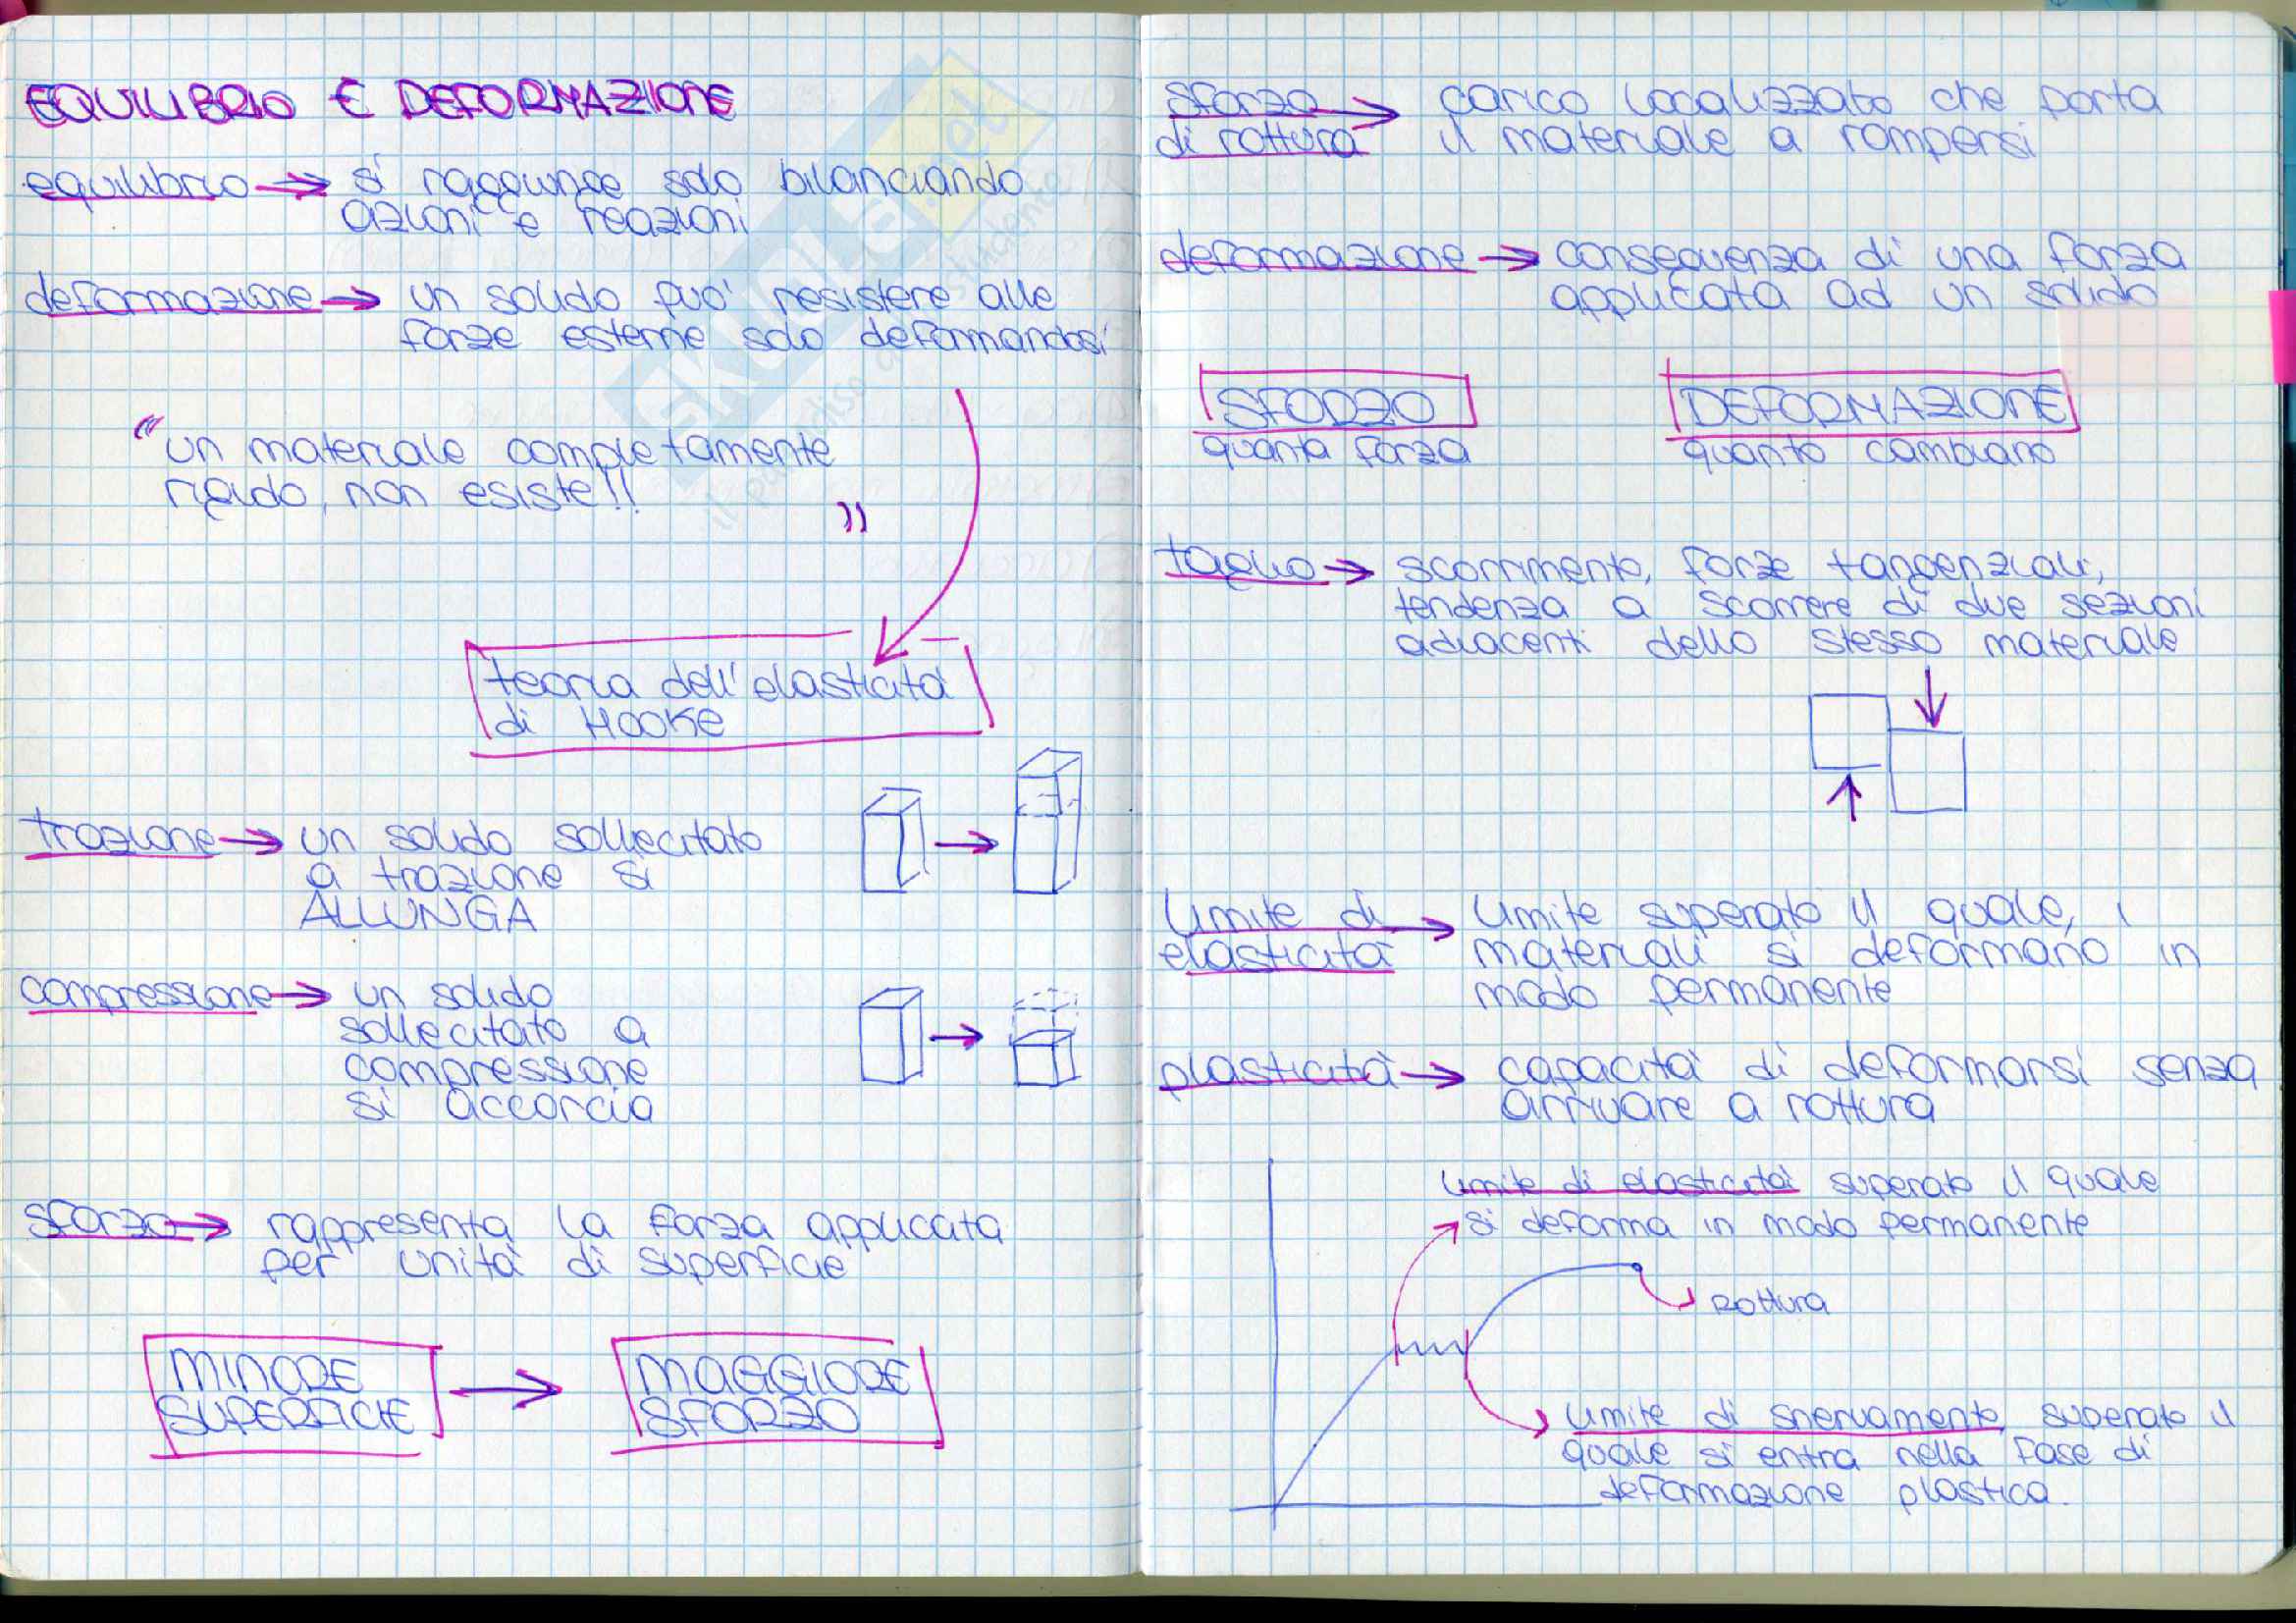 EQUILIBRIO E DEFORMAZIONE
equilibrio → si raggiunge solo bilanciando
azioni e reazioni
deformazione → un solido puo' resistere alle
forze esterne solo deformandosi
“un materiale completamente
rigido, non esiste!!
”
teoria dell'elasticità
di HOOKE
trazione → un solido sollecitato
a trazione si
ALLUNGA
compressione → un solido
sollecitato a
compressione
si accorcia
sforzo → rappresenta la forza applicata
per unità di superficie
MINORE
SUPERFICIE
→
MAGGIORE
SFORZO
sforzo
di rottura → carico localizzato che porta
il materiale a rompersi
deformazione → conseguenza di una forza
applicata ad un solido
SFORZO
quanta forza
DEFORMAZIONE
quanto cambiano
taglio → scorrimento, forze tangenziali,
tendenza a scorrere di due sezioni
adiacenti dello stesso materiale
limite di
elasticità → limite superato il quale, i
materiali si deformano in
modo permanente
plasticità → capacità di deformarsi senza
arrivare a rottura
limite di elasticità superato il quale
si deforma in modo permanente
Rottura
limite di snervamento superato il
quale si entra nella fase di
deformazione plastica.
SKUOLA.net